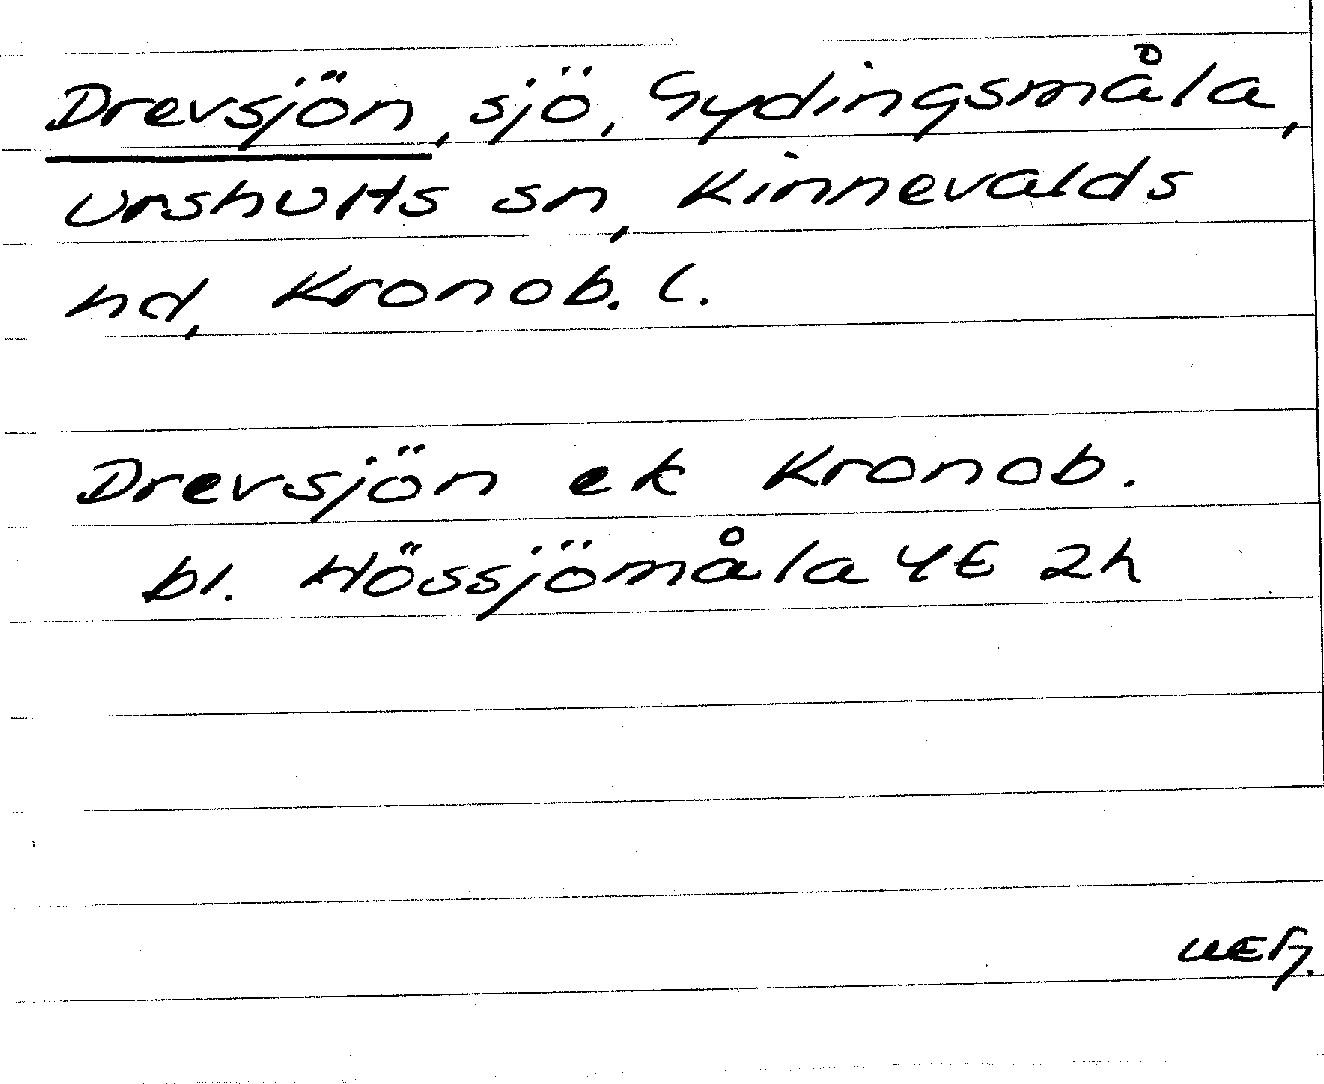 Drevsjön, sjö, Gydingsmåla,
Urshults sn, Kinnevalds
hd, Kronob. l.
Drevsjön ek Kronob.
bl. Hössjömåla 4E 2h